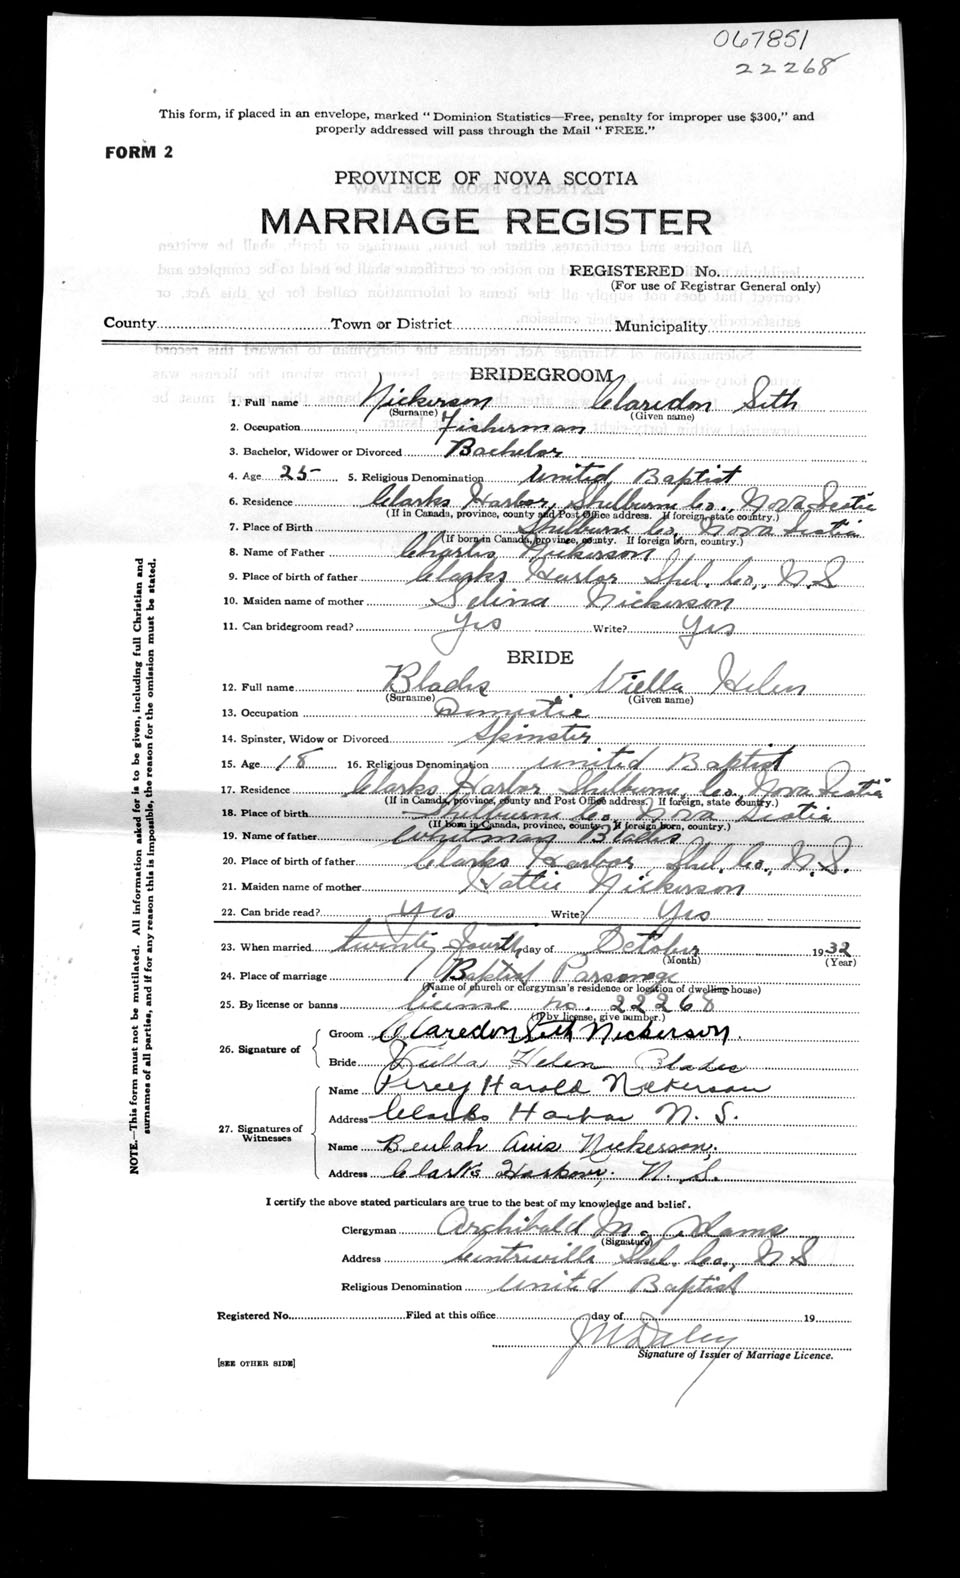 067851
22268
This form, if placed in an envelope, marked "Dominion Statistics—Free, penalty for improper use $300," and
properly addressed will pass through the Mail "FREE."
FORM 2
PROVINCE OF NOVA SCOTIA
MARRIAGE REGISTER
REGISTERED No.
(For use of Registrar General only)
County Town or District Municipality
BRIDEGROOM
1. Full name Nickerson Claredon Seth
(Surname) (Given name)
2. Occupation Fisherman
3. Bachelor, Widower or Divorced Bachelor
4. Age 25 5. Religious Denomination United Baptist
6. Residence Clarks Harbor, Shelburne Co., Nova Scotia
(If in Canada, province, county and Post Office address. If foreign, state country.)
7. Place of Birth Shelburne Co., Nova Scotia
(If born in Canada, province, county. If foreign born, country.)
8. Name of Father Charles Nickerson
9. Place of birth of father Clarks Harbor Shel. Co., N.S
10. Maiden name of mother Selina Nickerson
11. Can bridegroom read? Yes Write? Yes
BRIDE
12. Full name Blades Viella Helen
(Surname) (Given name)
13. Occupation Domestic
14. Spinster, Widow or Divorced Spinster
15. Age 18 16. Religious Denomination United Baptist
17. Residence Clarks Harbor Shelburne Co. Nova Scotia
(If in Canada, province, county and Post Office address. If foreign, state country.)
18. Place of birth Shelburne Co. Nova Scotia
(If born in Canada, province, county. If foreign born, country.)
19. Name of father Whitman Blades
20. Place of birth of father Clarks Harbor, Shel. Co., N.S.
21. Maiden name of mother Hattie Nickerson
22. Can bride read? Yes Write? Yes
23. When married twenty fourth day of October 1932
(Month) (Year)
24. Place of marriage Baptist Parsonage
(Name of church or clergyman's residence or location of dwelling house)
25. By license or banns license no. 22268
(If by license, give number.)
26. Signature of Groom Claredon Seth Nickerson.
Bride Viella Helen Blades
27. Signatures of Witnesses Name Percy Harold Nickerson
Address Clarks Harbor N. S.
Name Beulah Avis Nickerson,
Address Clark's Harbour, N. S.
I certify the above stated particulars are true to the best of my knowledge and belief.
Clergyman Archibald M. Adams
(Signature)
Address Centreville Shel. Co., N S
Religious Denomination United Baptist
Registered No. Filed at this office day of 19
J M Daley
Signature of Issuer of Marriage Licence.
[SEE OTHER SIDE]
NOTE.—This form must not be mutilated. All information asked for is to be given, including full Christian and
surnames of all parties, and if for any reason this is impossible, the reason for the omission must be stated.